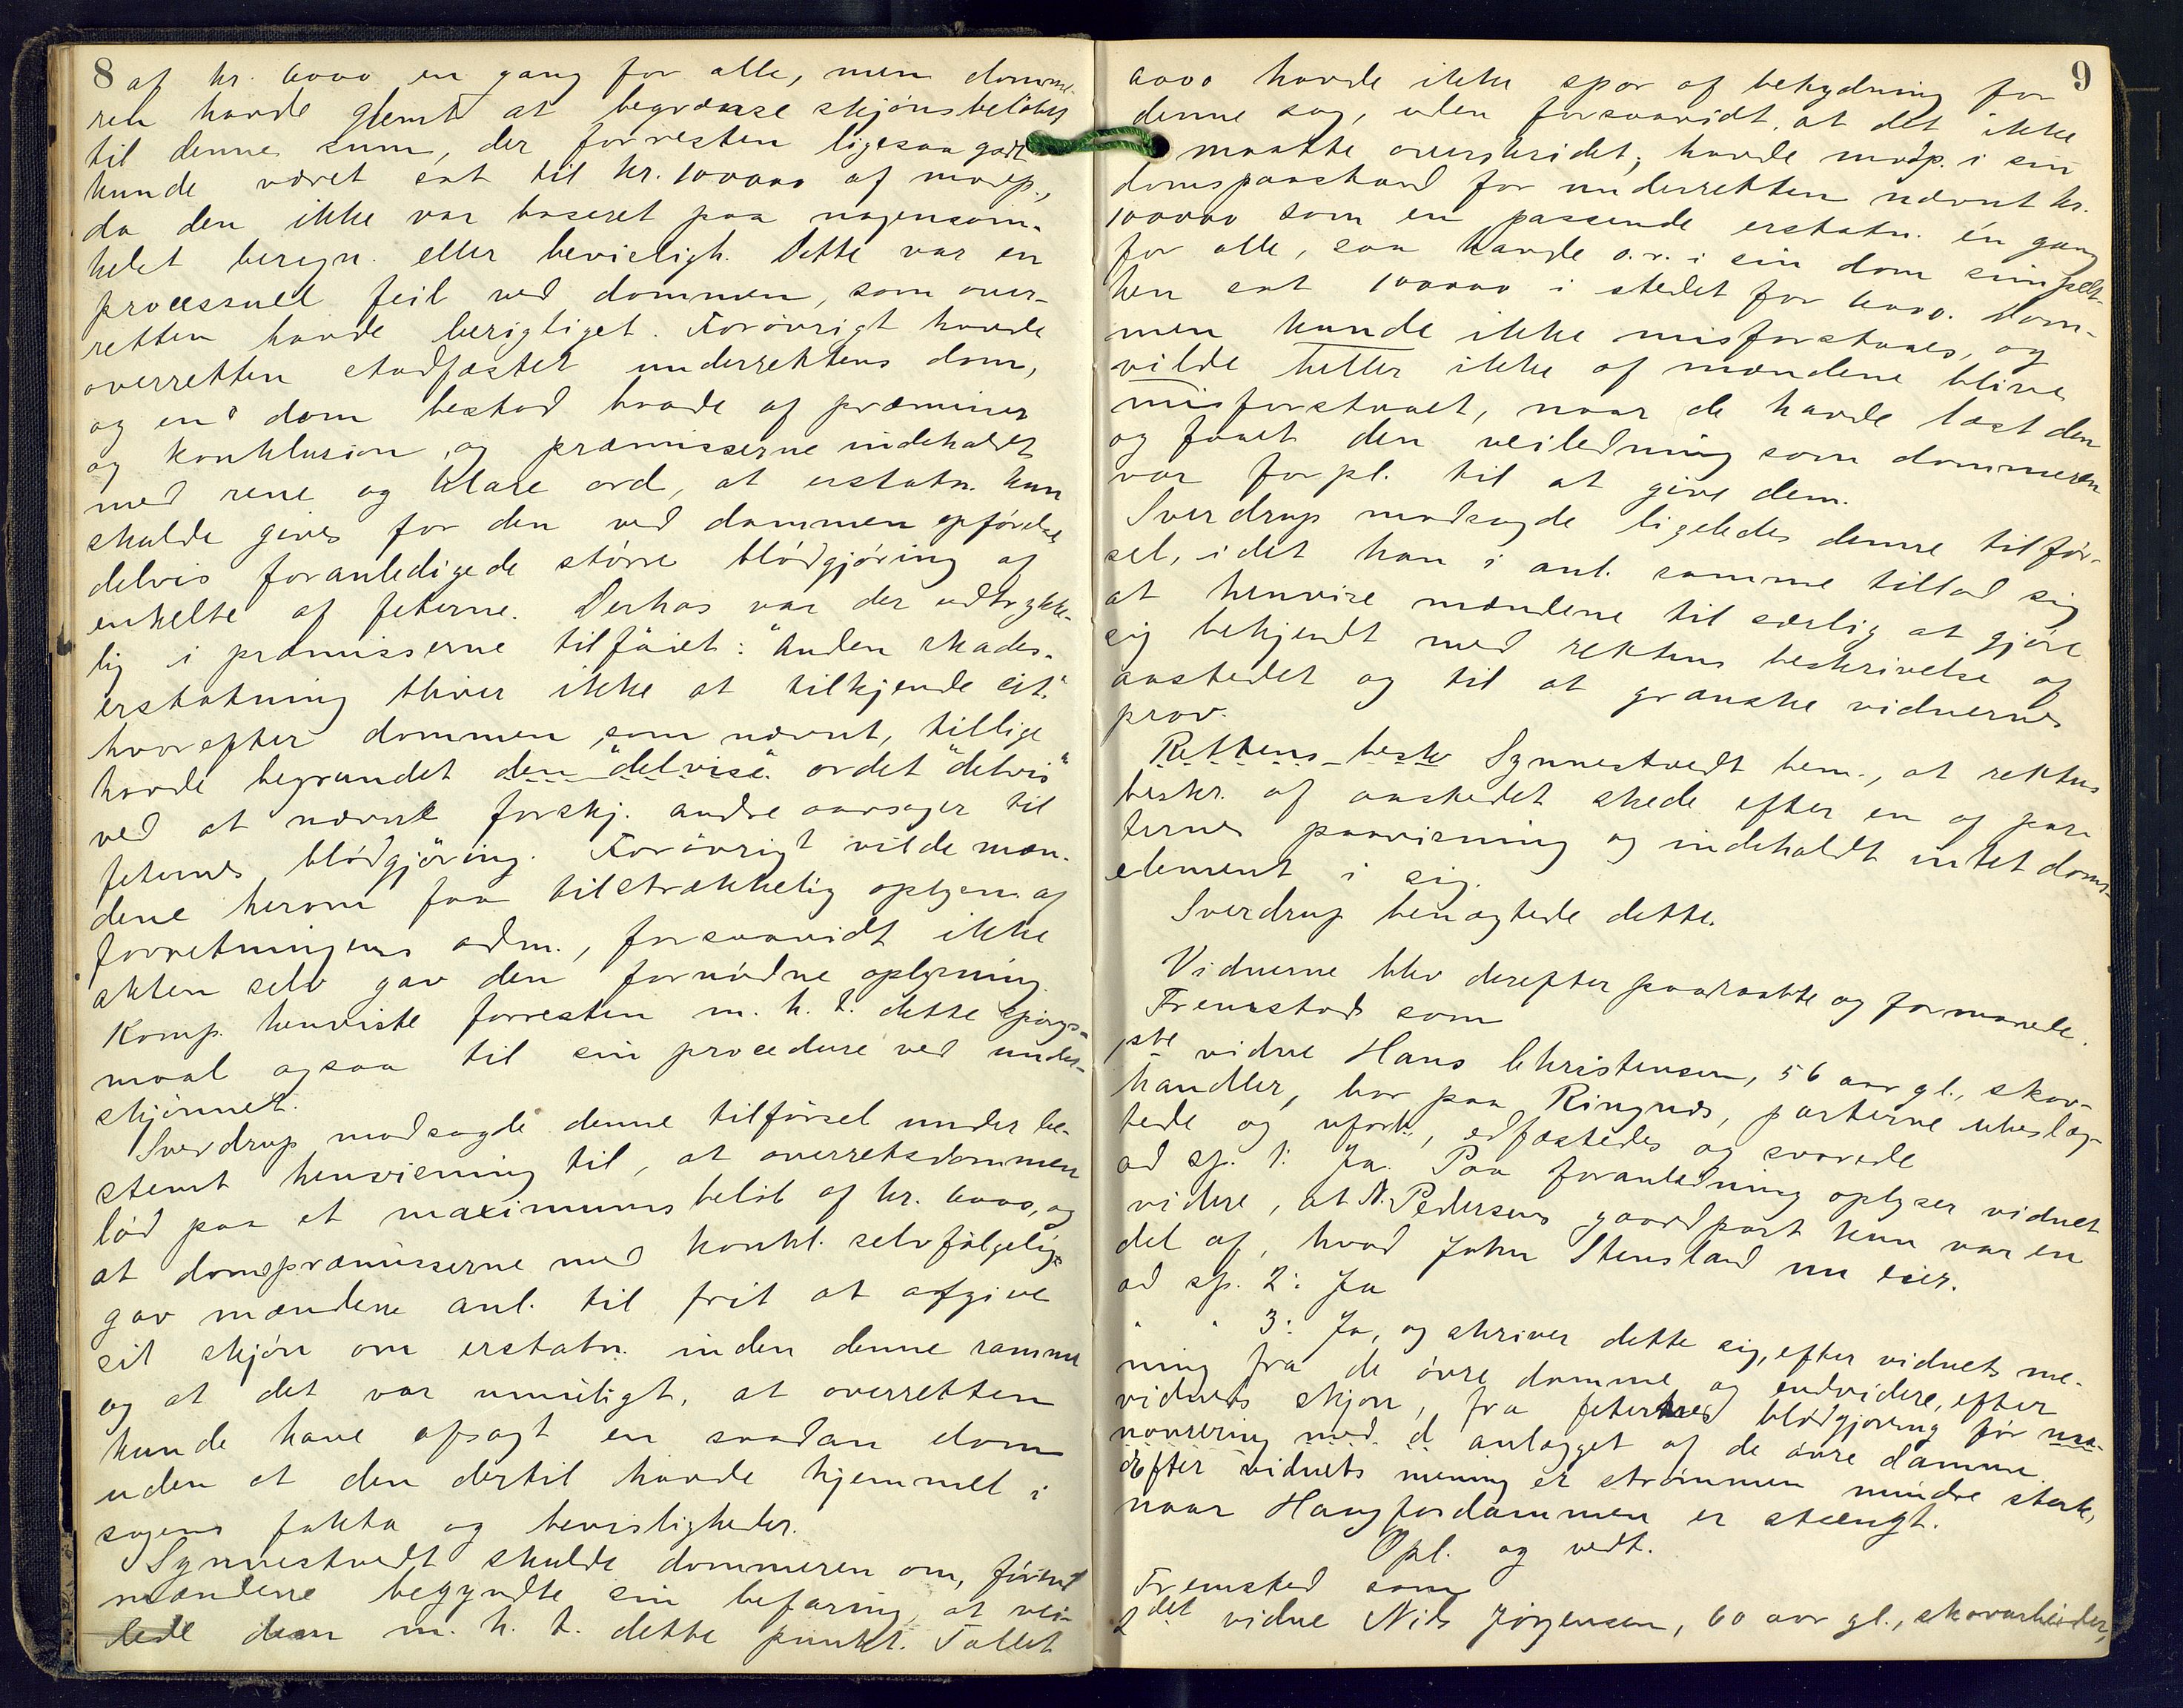 8
af kr. 6000 en gang for alle, men domme-
ren havde glemt at begrænse skjønsbeløbet
til denne sum, der forresten ligesaa godt
kunde været sat til kr. 100000 af modp.,
da den ikke var baseret paa nogensom-
helst beregn. eller bevisligh. Dette var en
processuel feil ved dommen, som over-
retten havde berigtiget. Forøvrigt havde
overretten stadfæstet underrettens dom,
og en dom bestod baade af præmisser
og konklusion, og præmisserne indeholdt
med rene og klare ord, at erstatn. kun
skulde gives for den ved dammen opførelse
delvis foranledigede større blødgjøring af
enkelte af feterne. Derhos var der udtrykke-
lig i præmisserne tilføiet: "Anden skades-
erstatning bliver ikke at tilkjende cit."
hvorefter dommen, som nævnt, tillige
havde begrundet den "delvise" ordet "delvis"
ved at nævne forskj. andre aarsager til
feternes blødgjøring. Forøvrigt vilde mæn-
dene herom faa tilstrækkelig oplysn. af
forretningens adm., forsaavidt ikke
akten selv gav den fornødne oplysning.
Komp. henviste forresten m. h. t. dette spørgs-
maal ogsaa til sin procedure ved under-
skjønnet.
Sverdrup modsagde denne tilførsel under be-
stemt henvisning til, at overretsdommen
lød paa et maximumsbeløb af kr. 6000, og
at domspræmisserne med konkl. selvfølgelig
gav mændene anl. til frit at afgive
sit skjøn om erstatn. inden denne ramme
og at det var umuligt, at overretten
kunde have afsagt en saadan dom
uden at den dertil havde hjemmel i
sagens fakta og bevisligheder.
Synnestvedt skulde dommeren om, førend
mændene begyndte sin befaring, at vei-
lede dem m. h. t. dette punkt. Tallet
9
6000 havde ikke spor af betydning for
denne sag, uden forsaavidt, at det ikke
maatte overskrides; havde modp. i sin
domspaastand for underretten nævnt kr.
100000 som en passende erstatn. én gang
for alle, saa havde o.r. i sin dom simpelt-
hen sat 100000 i stedet for 6000. Dom-
men kunde ikke misforstaaes, og
vilde heller ikke af mændene blive
misforstaaet, naar de havde læst den
og faaet den veiledning som dommeren
var forpl. til at give dem.
Sverdrup modsagde ligeledes denne tilfør-
sel, idet han i anl. samme tillod sig
at henvise mændene til særlig at gjøre
sig bekjendt med rettens beskrivelse af
aastedet og til at granske vidnernes
prov.
Rettens besk Synnestvedt bem., at rettens
beskr. af aastedet skede efter en af par-
ternes paavisning og indeholdt intet doms-
element i sig.
Sverdrup benægtede dette.
Vidnerne blev derefter paaraabte og formanede.
Fremstod som
1ste vidne Hans Christensen, 56 aar gl., skov-
handler, bor paa Ringnes, parterne ubeslæg-
tede og uforh., edfæstedes og svarede
ad sp. 1: Ja. Paa foranledning oplyser vidnet
videre, at N. Pedersens gaardpart kun var en
del af, hvad John Stensland nu eier.
ad sp. 2: Ja
" " 3: Ja, og skriver dette sig, efter vidnets me-
ning fra de øvre damme og endvidere, efter
vidnets skjøn, fra feternes blødgjøring før
med d anlægget af de øvre damme.
Efter vidnets mening er strømmen mindre sterk,
naar Haugfosdammen er stængt.
Opl. og vedt.
Fremstod som
2det vidne Nils Jørgensen, 60 aar gl., skovarbeider,